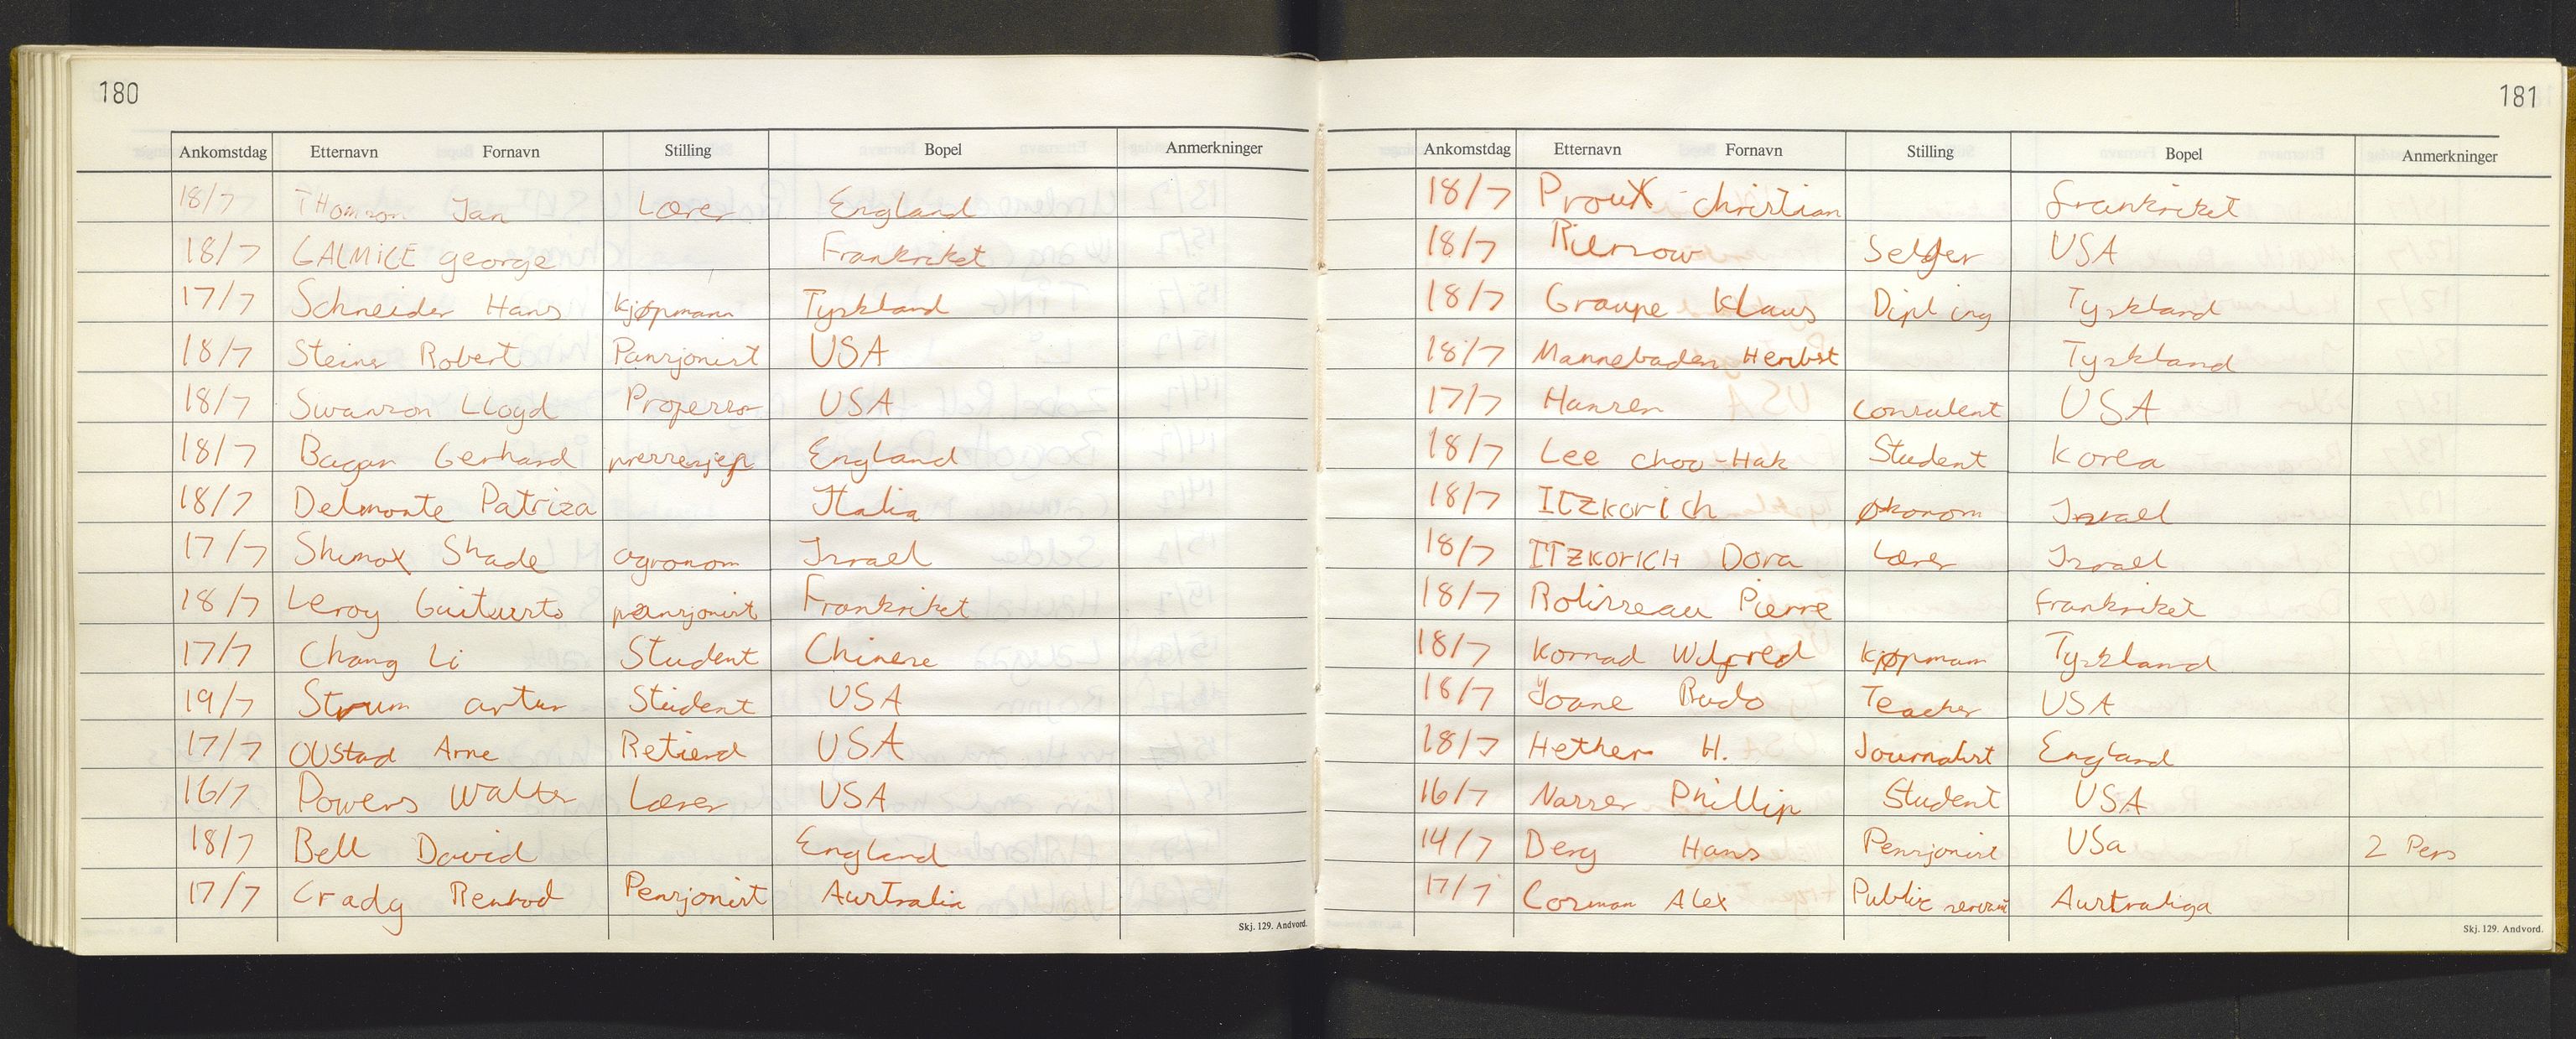 180
Ankomstdag Etternavn Fornavn Stilling Bopel Anmerkninger
18/7 THomson Jan Lærer England
18/7 GALMICE george Frankriket
17/7 Schneider Hans kjøpmann Tyskland
18/7 Steiner Robert Pansjonist USA
18/7 Swanson Lloyd Professor USA
18/7 Bagan Gerhard England
18/7 Delmonte Patriza Italia
17/7 Shimox Shade agronom Israel
18/7 Leroy pansjonist Frankriket
17/7 Chang Li Student Chinese
19/7 Strum artur Student USA
17/7 OUstad Arne Retierd USA
16/7 Powers Walter Lærer USA
18/7 Bell David England
17/7 Crady Pensjonist Australia
Skj. 129. Andvord.
181
Ankomstdag Etternavn Fornavn Stilling Bopel Anmerkninger
18/7 Proux christian frankriket
18/7 Selger USA
18/7 Graupe Klaus Dipl ing Tyskland
18/7 Mannebaden Herbst Tyskland
17/7 Hansen consulent USA
18/7 Lee choo-Hak Student Korea
18/7 ITZKorich økonom Israel
18/7 ITZKORICH Dora Lærer Israel
18/7 Rolisseau Pierre frankriket
18/7 Kornad Wilfred kjøpmann Tyskland
18/7 Joane Budo Teacher USA
18/7 Hethern H. Journalist England
16/7 Nasser Phillip Student USA
14/7 Berg Hans Pensjonist USa 2 Pers
17/7 Corman Alex Public servant Australiga
Skj. 129. Andvord.